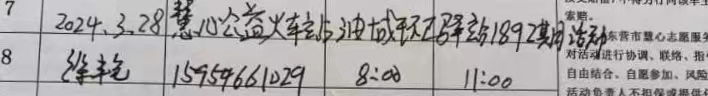 7
2024.3.28慧心公益火车站与油城环卫驿站1892期活动
8
徐丰先 15954661029 8:00 11:00
东营市慧心志愿服务
对活动进行协调、联络、指
自由结合、自愿参加、风险
活动负责人不担保或提供